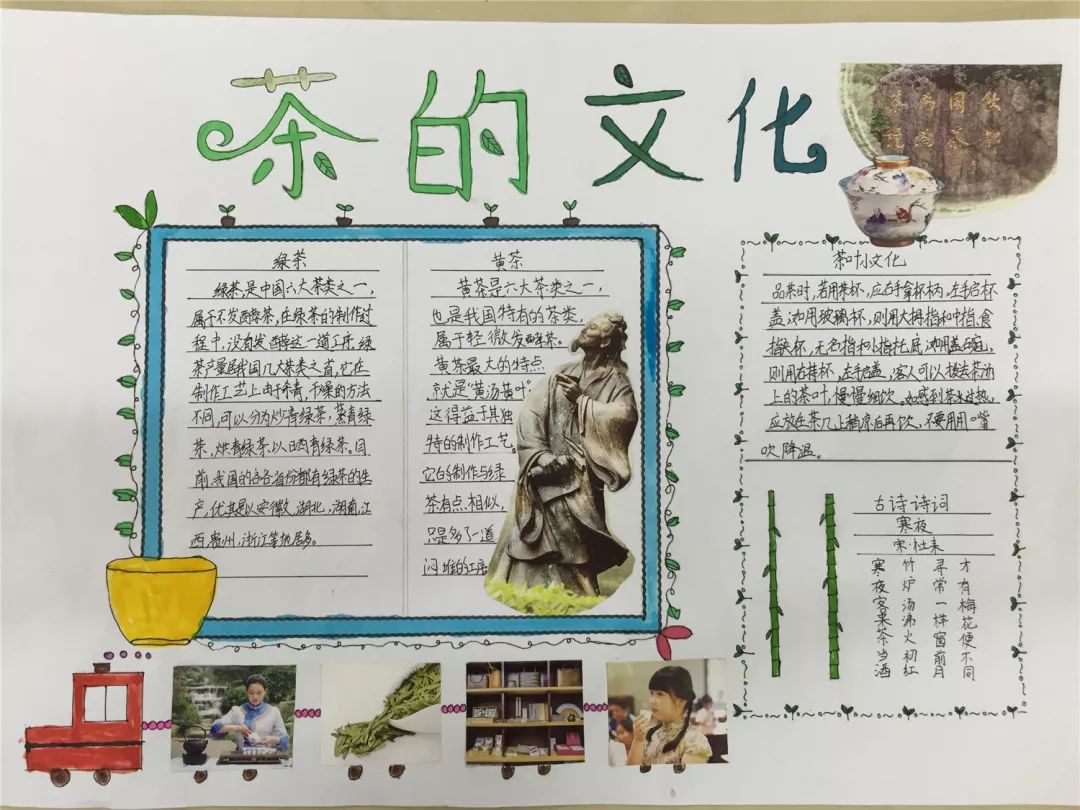 茶的文化
绿茶
绿茶,是中国六大茶类之一,
属于不发酵茶,在绿茶的制作过
程中,没有发酵这一道工序,绿
茶产量居我国几大茶类之首,它在
制作工艺上由于杀青,干燥的方法
不同,可以分为炒青绿茶,蒸青绿
茶,烘青绿茶以日晒青绿茶。目
前,我国的各各省份都有绿茶的生
产,优其是以安徽,湖北,湖南,江
西,贵州,浙江等地居多。
黄茶
黄茶是六大茶类之一,
也是我国特有的茶类,
属于轻微发酵茶。
黄茶最大的特点
就是“黄汤黄叶”
这得益于其独
特的制作工艺。
它的制作与绿
茶有点相似,
只是多了一道
闷堆的工序
茶叶小文化
品茶时,若用茶杯,应右手拿杯柄,左手启杯
盖;如用玻璃杯,则用大拇指和中指、食
指执杯,无名指和小指托底;如用盖碗,
则用右持杯,左手启盖,客人可以拨去茶汤
上的茶叶,慢慢细饮。如感到茶水过热,
应放在茶几上稍凉后再饮,不要用用口嘴
吹降温。
古诗诗词
寒夜
宋·杜耒
寒夜客来茶当酒
竹炉汤沸火初红
寻常一样窗前月
才有梅花便不同